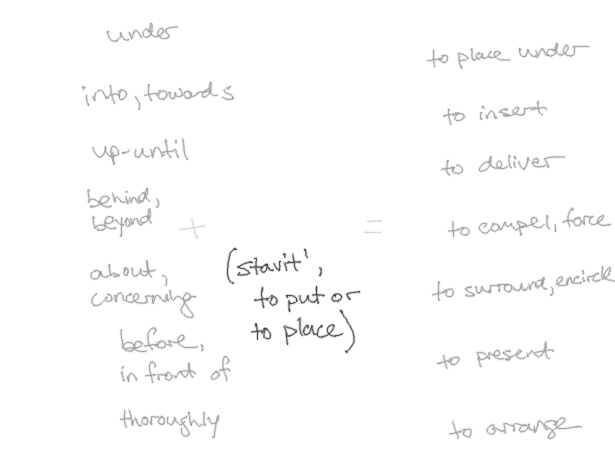 under
into, towards
up-until
behind,
beyond
about,
concerning
before,
in front of
thoroughly
+
(stavit',
to put or
to place)
=
to place under
to insert
to deliver
to compel, force
to surround, encircle
to present
to arrange